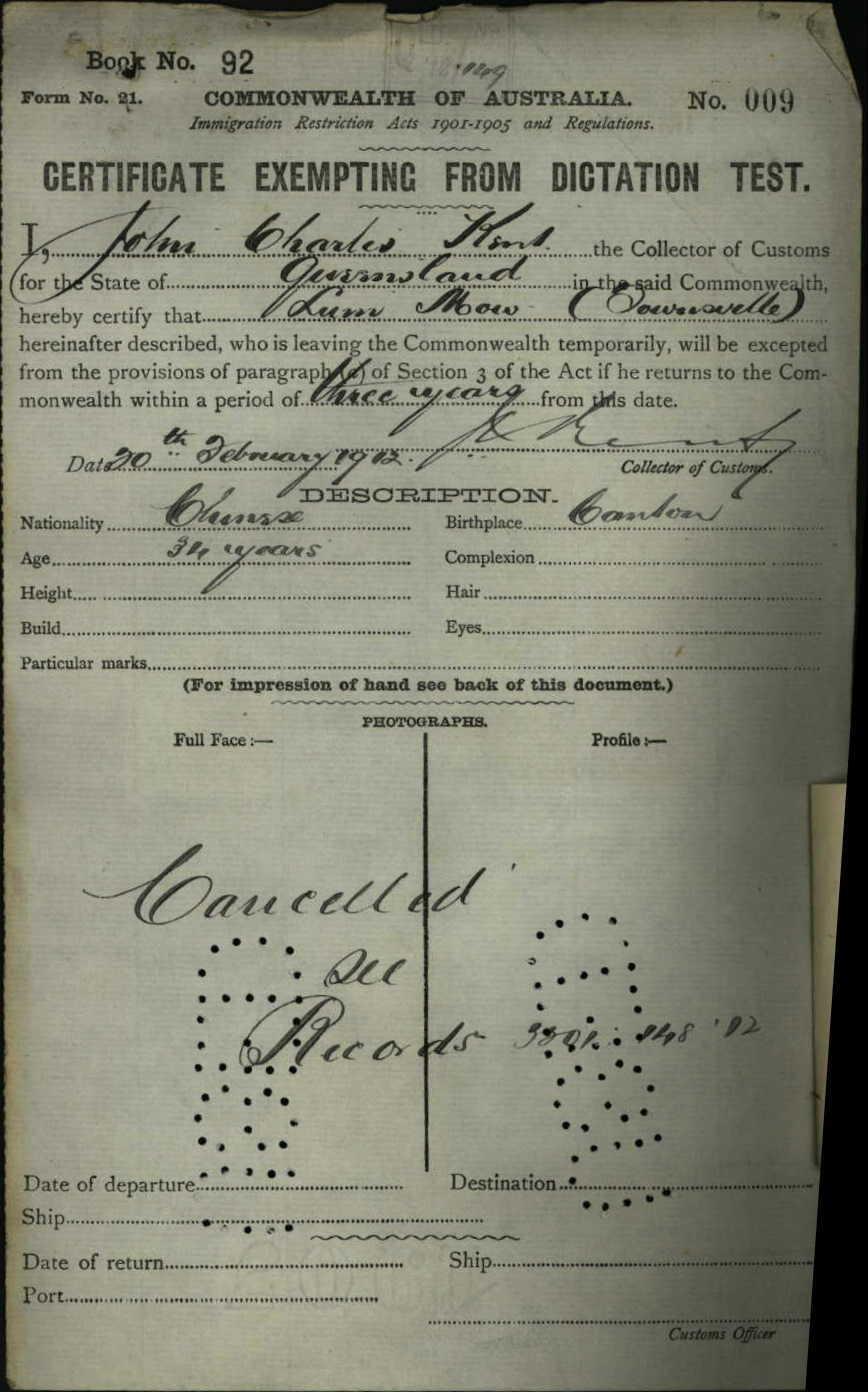 Book No. 92
Form No. 21. COMMONWEALTH OF AUSTRALIA. No. 009
Immigration Restriction Acts 1901-1905 and Regulations.
CERTIFICATE EXEMPTING FROM DICTATION TEST.
I, John Charles Kent the Collector of Customs
for the State of Queensland in the said Commonwealth,
hereby certify that Lum Mow (Townsville)
hereinafter described, who is leaving the Commonwealth temporarily, will be excepted
from the provisions of paragraph (a) of Section 3 of the Act if he returns to the Com-
monwealth within a period of three years from this date.
Date 20th February 1912. J C Kent
Collector of Customs.
DESCRIPTION.
Nationality Chinese Birthplace Canton
Age 34 years Complexion
Height Hair
Build Eyes
Particular marks
(For impression of hand see back of this document.)
PHOTOGRAPHS.
Full Face:— Profile:—
Cancelled
See
Records
Date of departure Destination
Ship
Date of return Ship
Port
Customs Officer